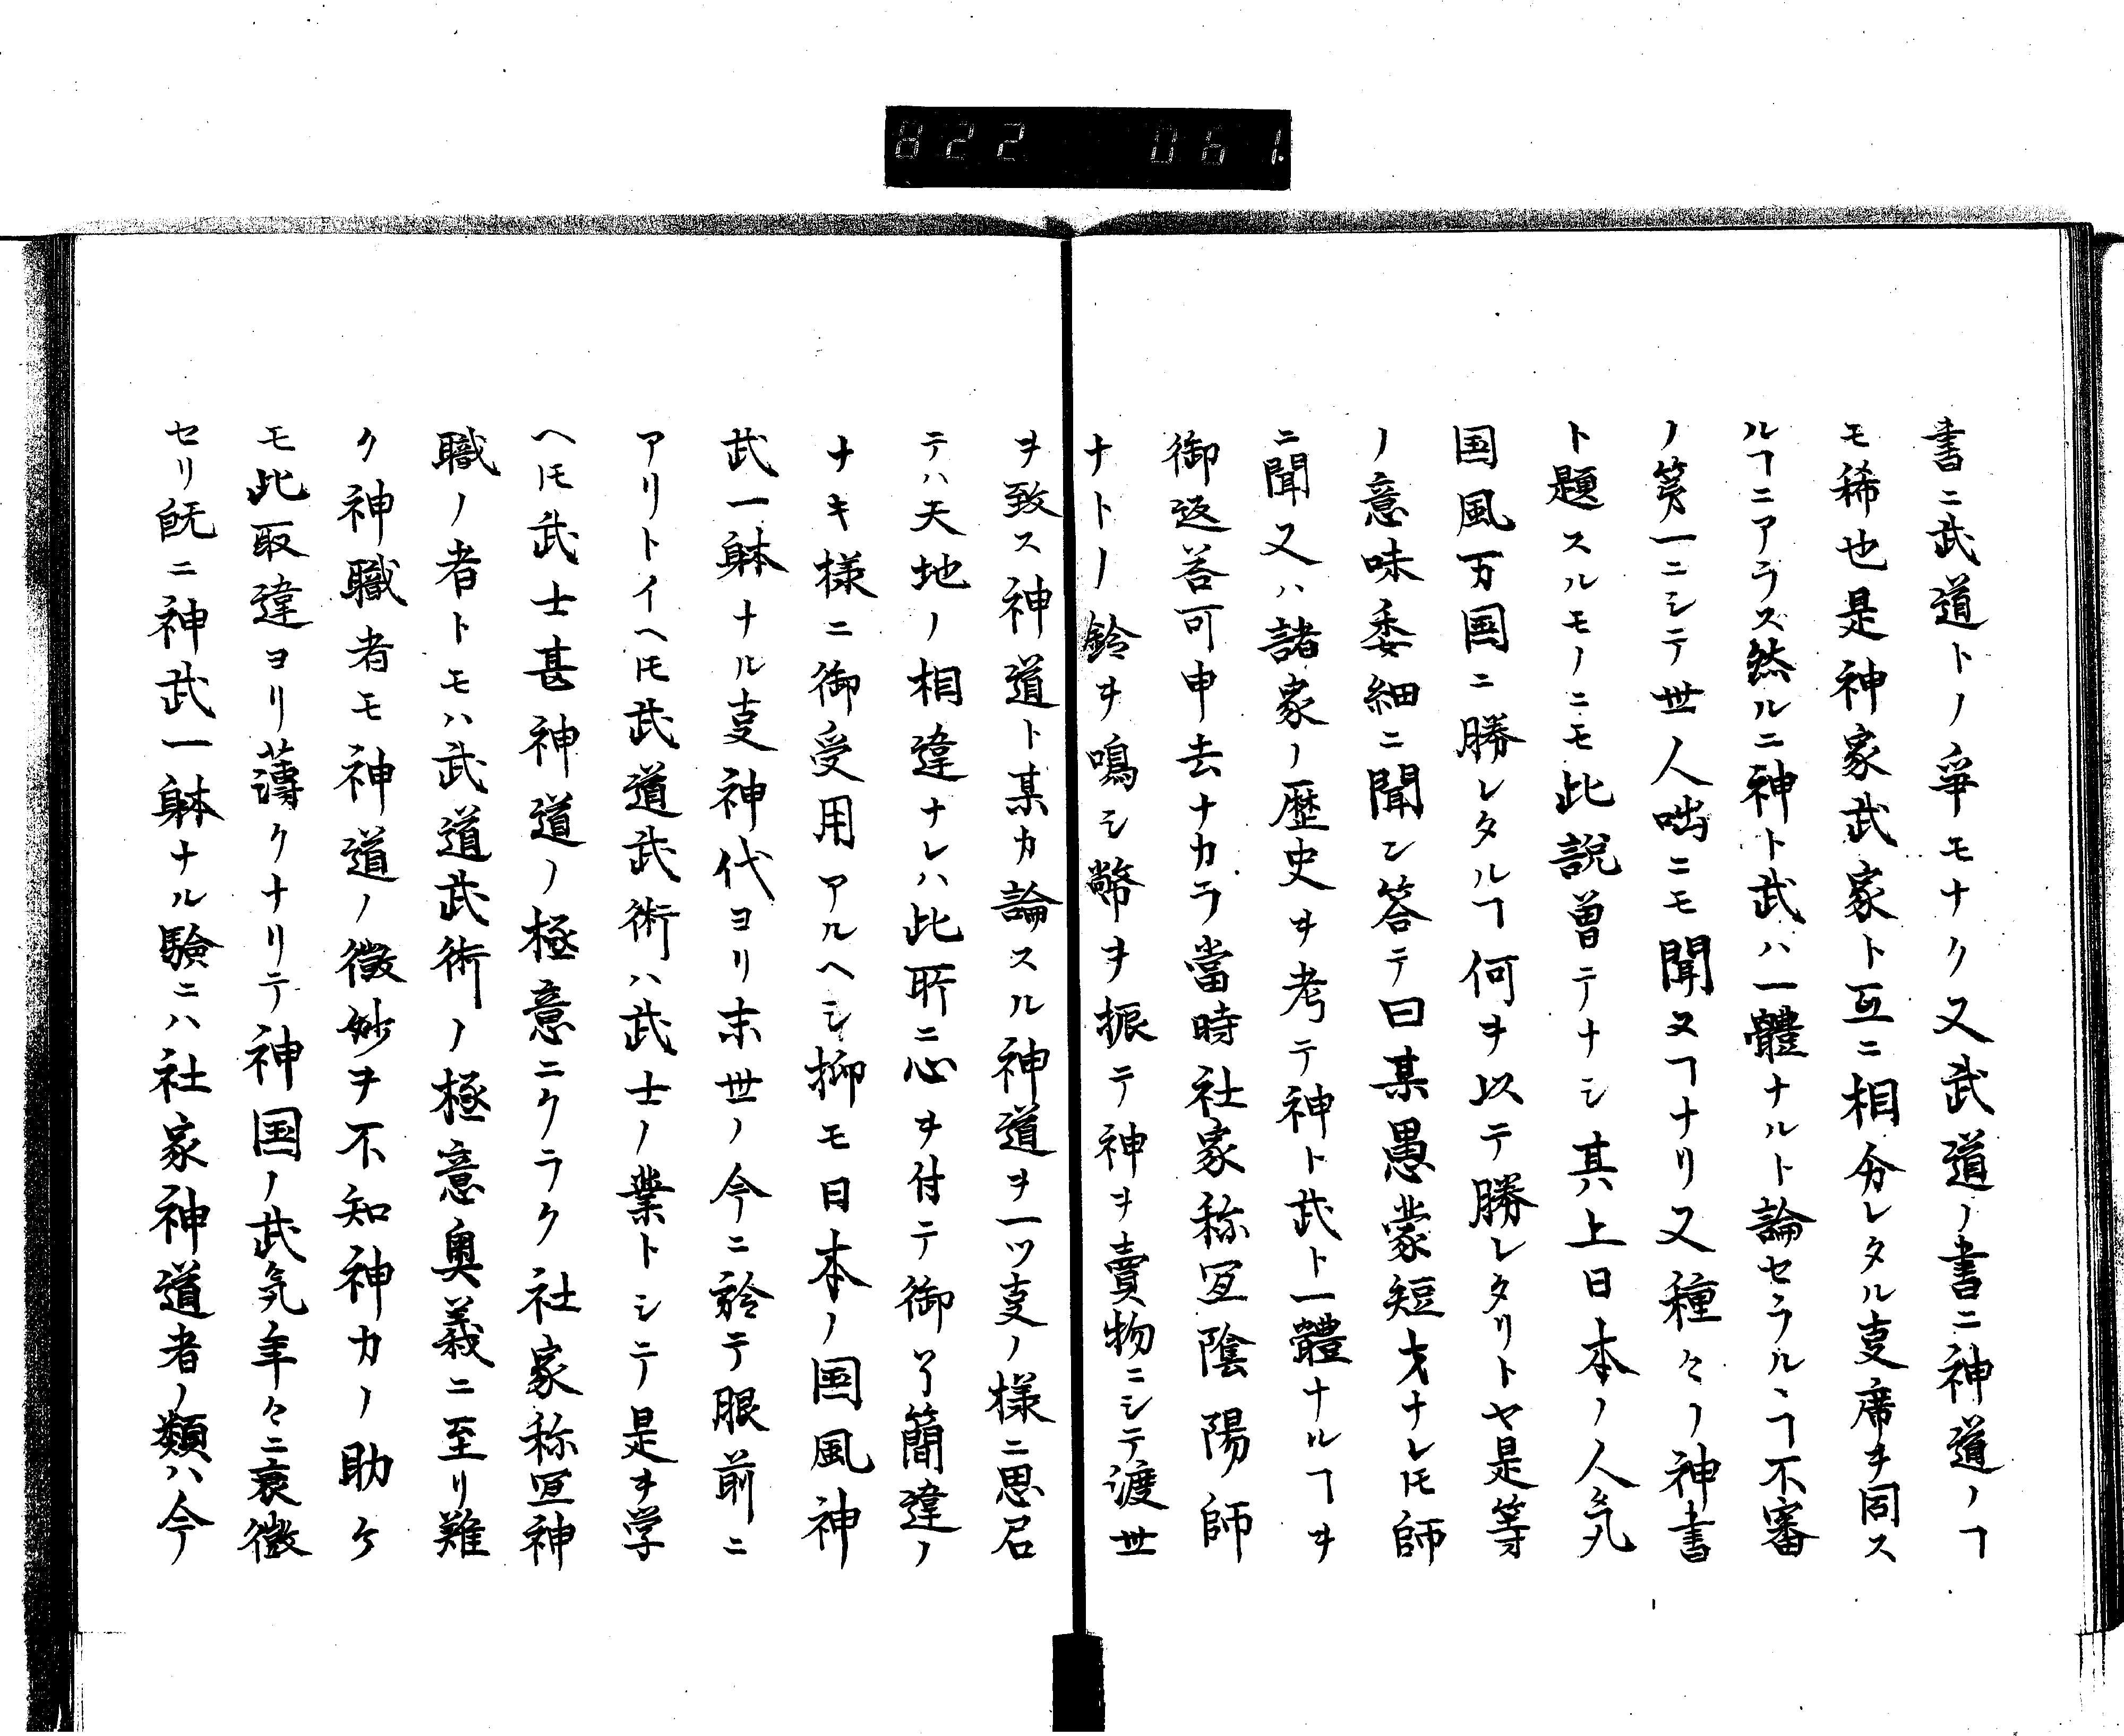 822 061.
書ニ武道トノ爭モナク又武道ノ書ニ神道ノヿ
モ稀也是神家武家ト互ニ相分レタル㕝席ヲ同ス
ルヿニアラス然ルニ神ト武ハ一體ナルト論セラルヽヿ不審
ノ第一ニシテ世人咄ニモ聞ヌヿナリ又種々ノ神書
ト題スルモノニモ此説曽テナシ其ハ上日本ノ人気
国風万国ニ勝レタルヿ何ヲ以テ勝レタリトヤ是等
ノ意味委細ニ聞ン答テ曰某愚蒙短才ナレ𪜈師
ニ聞又ハ諸家ノ歴史ヲ考テ神ト武ト一體ナルヿヲ
御返答可申去ナカラ當時社家称宜陰陽師
ナトノ鈴ヲ鳴シ幣ヲ振テ神ヲ賣物ニシテ渡世
ヲ致ス神道ト某カ論スル神道ヲ一ツ㕝ノ様ニ思召
テハ天地ノ相違ナレハ此所ニ心ヲ付テ御了簡違ノ
ナキ様ニ御受用アルヘシ抑モ日本ノ国風神
武一躰ナル㕝神代ヨリ末世ノ今ニ於テ眼前ニ
アリトイヘ𪜈武道武術ハ武士ノ業トシテ是ヲ学
ヘ𪜈武士甚神道ノ極意ニクラク社家称宜神
職ノ者トモハ武道武術ノ極意奥義ニ至リ難
ク神職者モ神道ノ微妙ヲ不知神カノ助ケ
モ此取違ヨリ薄クナリテ神国ノ武気年々ニ衰微
セリ既ニ神武一躰ナル験ニハ社家神道者ノ類ハ今